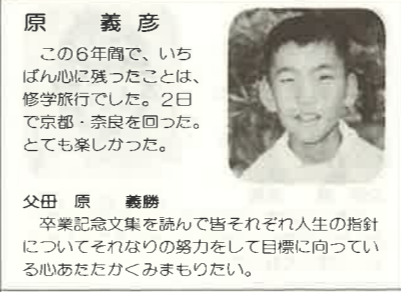 原　義彦
この６年間で、いち
ばん心に残ったことは、
修学旅行でした。２日
で京都・奈良を回った。
とても楽しかった。
父母　原　義勝
卒業記念文集を読んで皆それぞれ人生の指針
についてそれなりの努力をして目標に向ってい
る心あたたかくみまもりたい。